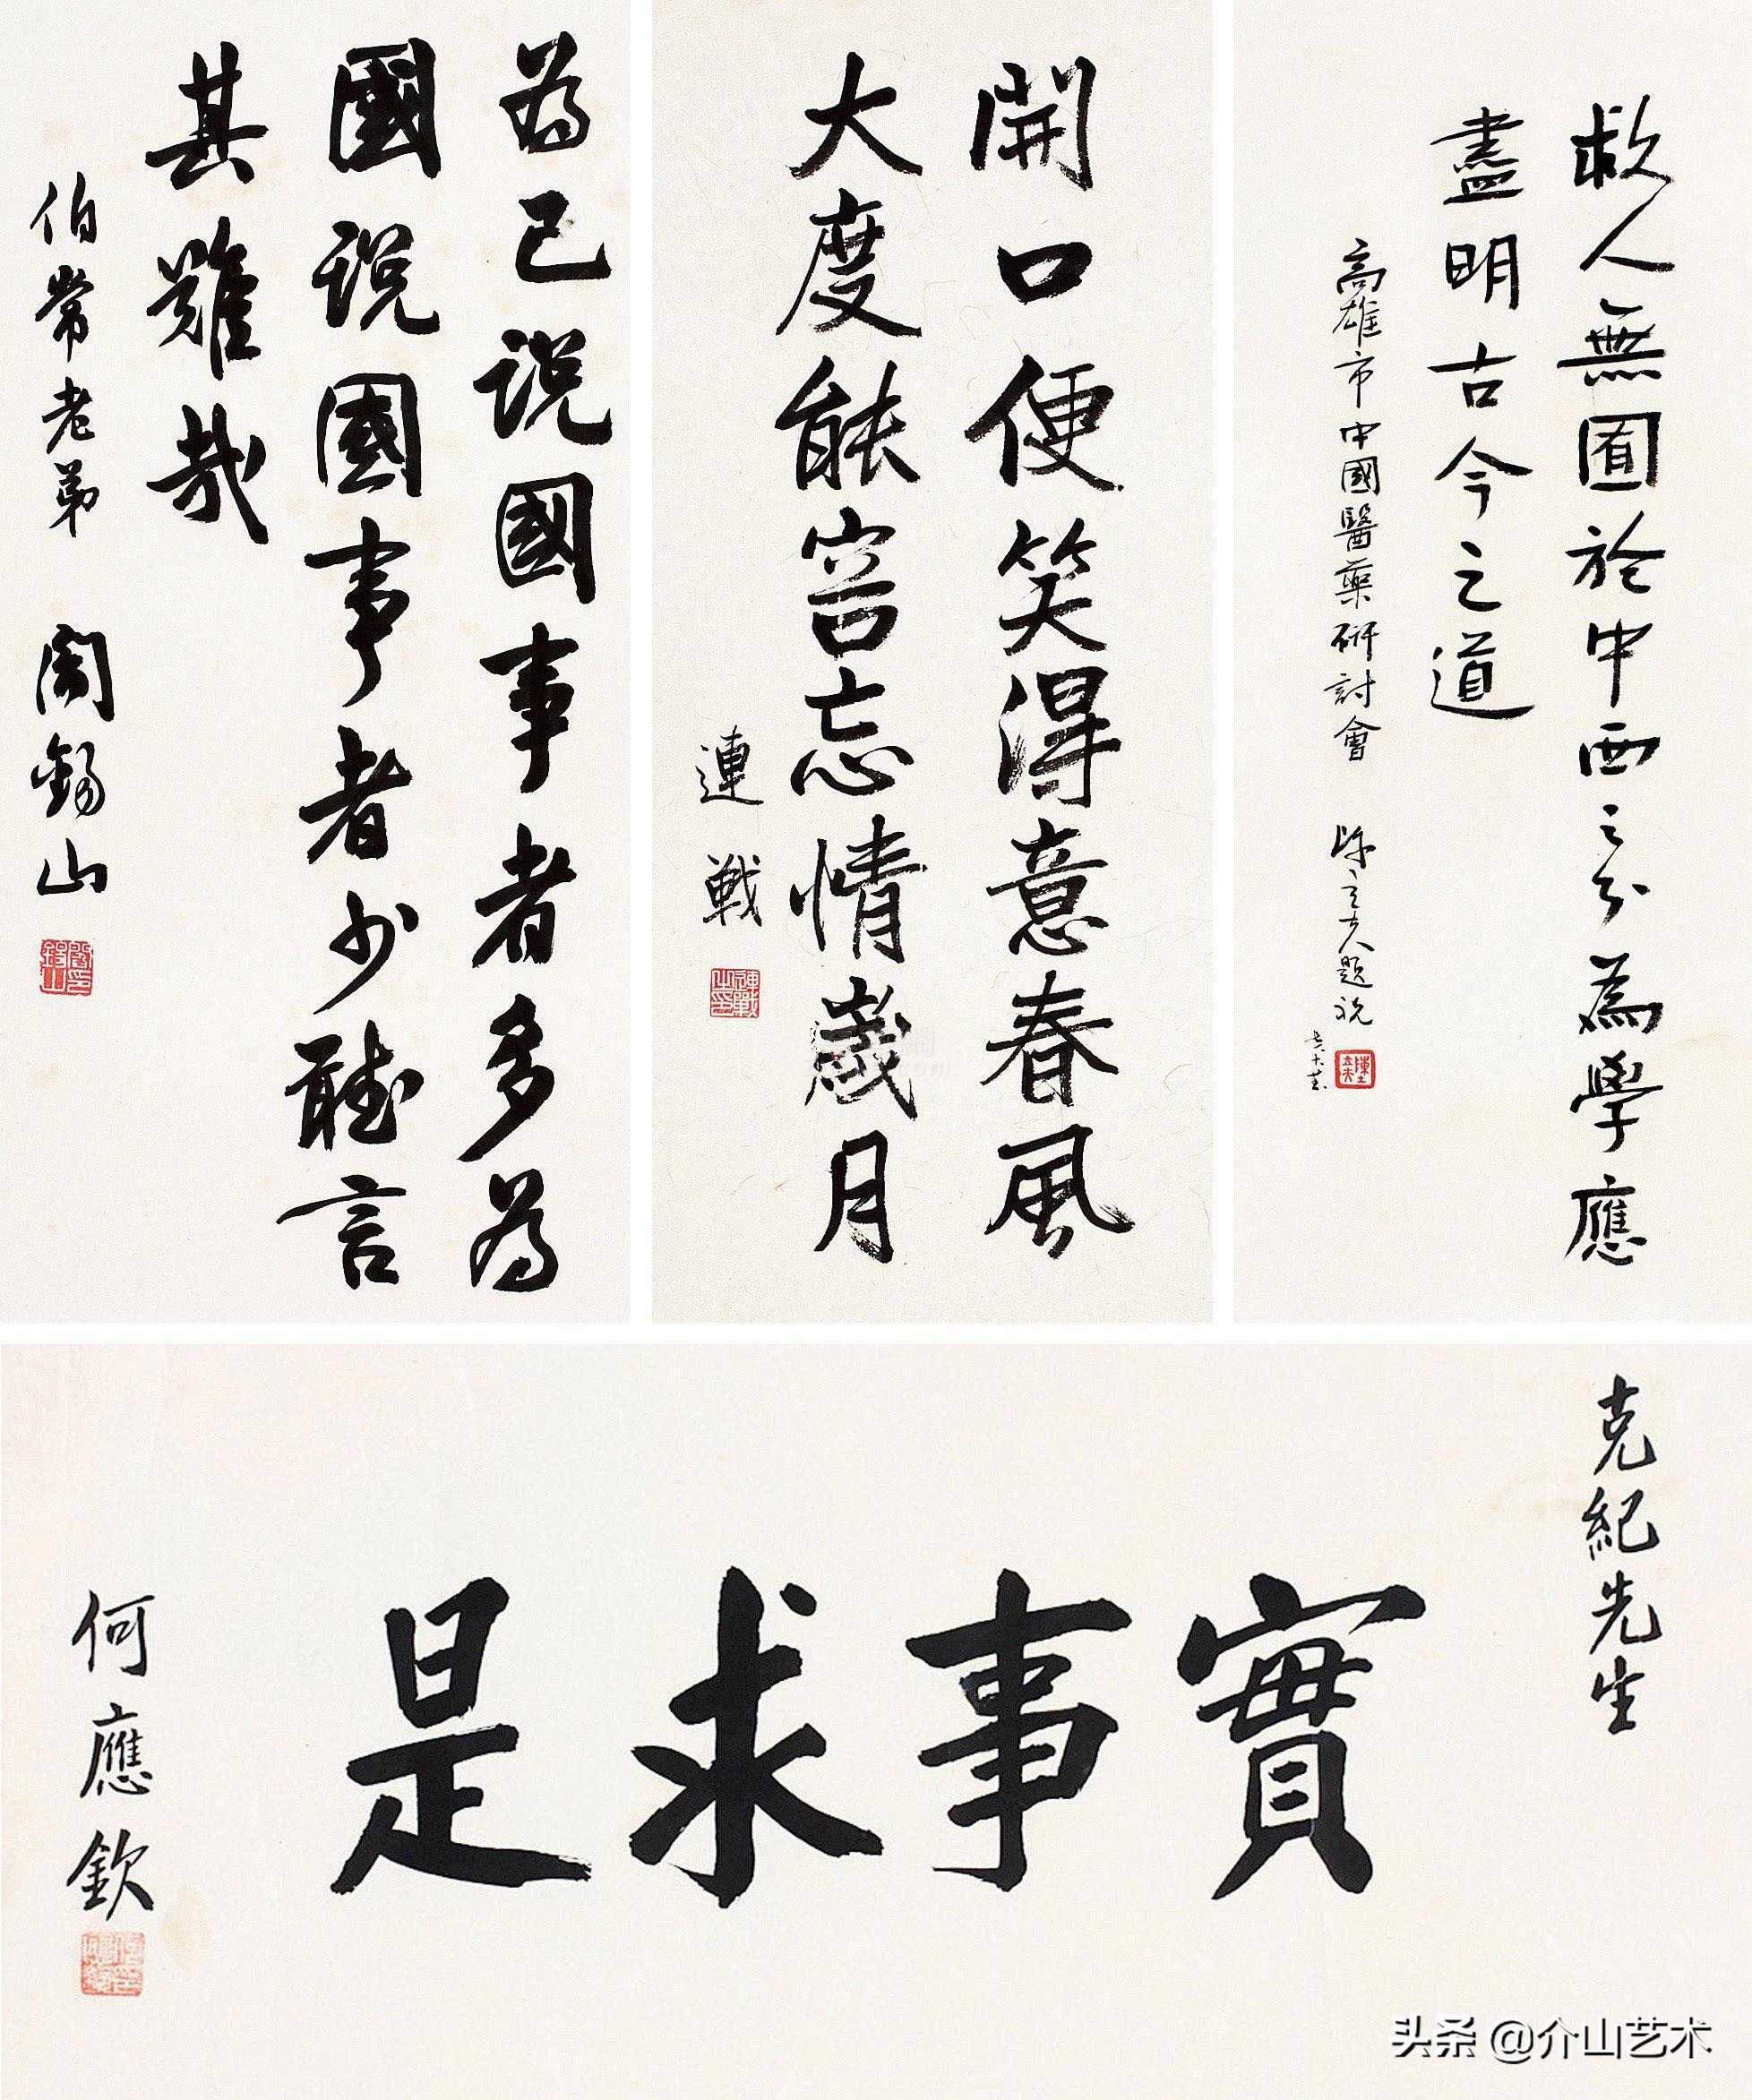 救人無囿於中西之分為學應
盡明古今之道
高雄市中國醫藥研討會 陳立夫題祝
開口便笑得意春風
大度能容忘情歲月
連戰
為己說國事者多為
國說國事者少聽言
其難哉
伯常老弟 閻錫山
克紀先生
實事求是
何應欽
头条 @介山艺术